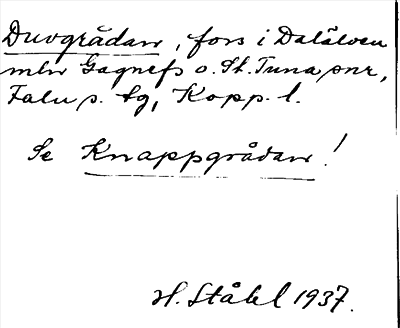 Duvgrådan, fors i Dalälven
mlw Gagnefs o. St. Tuna snr,
Falu s. tg, Kopp. l.
Se Knappgrådan!
H. Ståhl 1937.